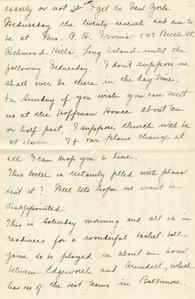 exactly or not we get to New York
Wednesday the twenty-second and am to
be at Mrs. G. H. Irvin's 543 Beech St.
Richmond Hill, Long Island until the
following Wednesday. I don't suppose we
shall ever be there in the day time.
On Sunday if you wish you can meet
us at the Hoffman House about ten
or half past, I suppose church will be
at eleven. If our plans change at
all I can drop you a line.
This letter is certainly filled with plans
isn't it? Well lets hope we won't be
disappointed.
This is Saturday morning and all is in
readiness for a wonderful basket ball
game to be played in about an hour
between Edgeworth and Arundell, which
has one of the best teams in Baltimore.